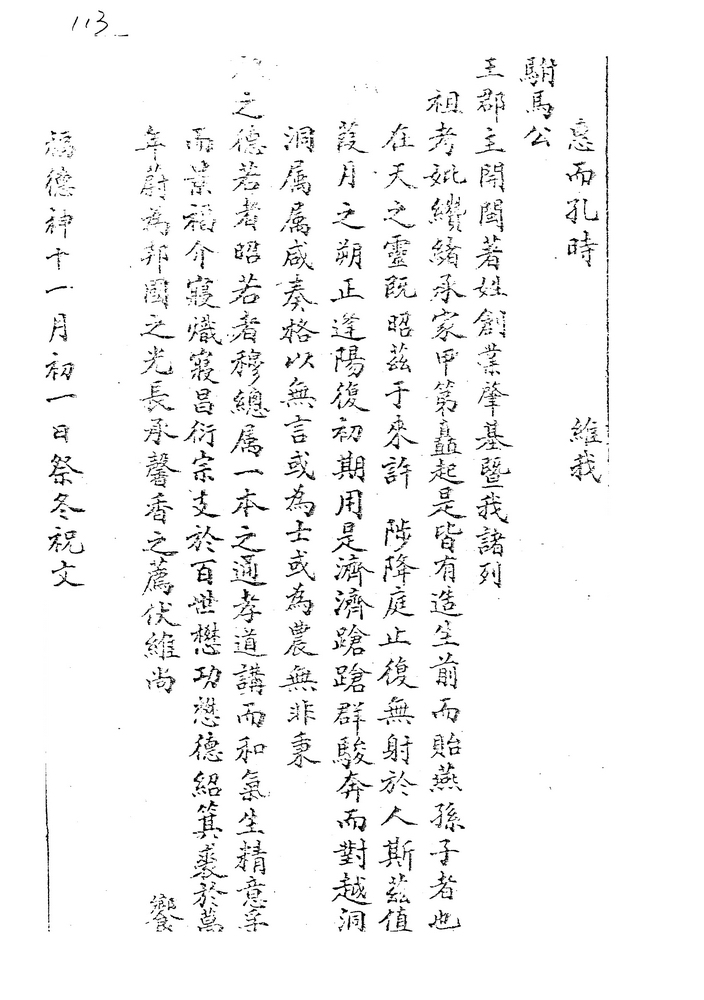 113
惠而孔時　維我
駙馬公
王郡主開閩著姓創業肇基暨我諸列
祖考妣纘緒承家甲第矗起是皆有造生前而貽燕孫子者也
在天之靈旣昭茲于來許　陟降庭止復無射於人斯茲值
葭月之朔正逢陽復初期用是濟濟蹌蹌群駿奔而對越洞
洞属属咸奏格以無言或為士或為農無非秉
之德若者昭若者穆總属一本之通孝道講而和氣生精意孚
而景福介寢熾寢昌衍宗支於百世懋功懋德紹箕裘於萬
年蔚為邦國之光長承馨香之薦伏維尚
饗
福德神十一月初一日祭冬祝文